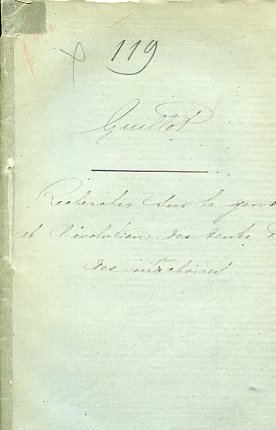 119
Guillot
Recherches sur la gen
et l'évolution des dents
des mâchoires